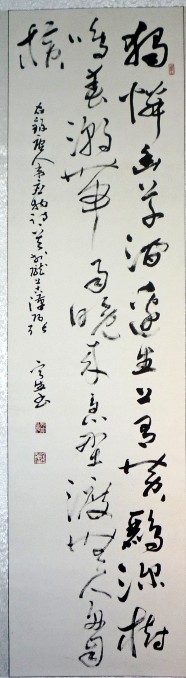 獨憐幽草澗邊生上有黃鸝深樹
鳴春潮帶雨晚来急野渡無人舟自
橫
右録唐人韋應物詩